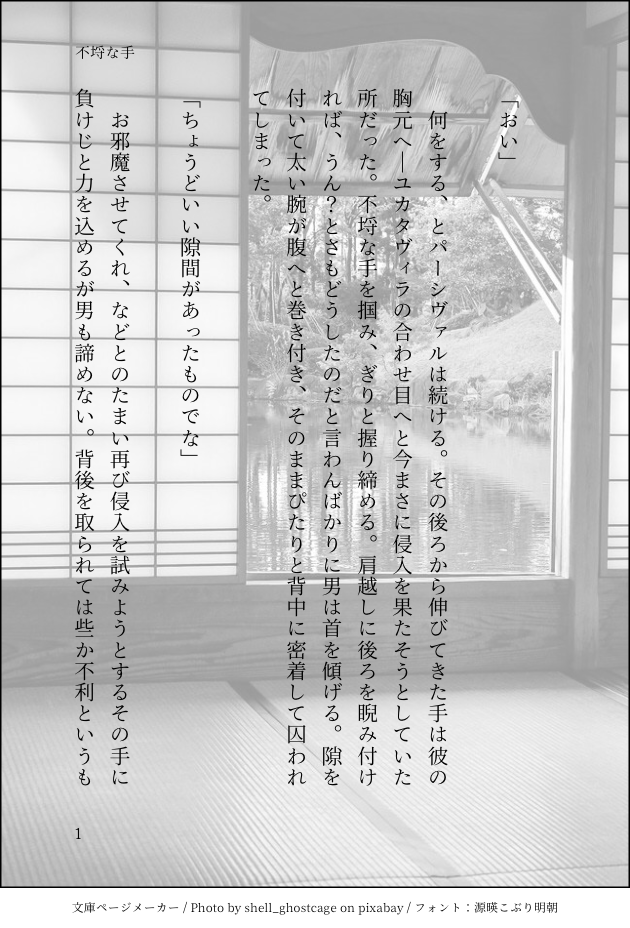 不埒な手
「おい」
　何をする、とパーシヴァルは続ける。その後ろから伸びてきた手は彼の
胸元へ―ユカタヴィラの合わせ目へと今まさに侵入を果たそうとしていた
所だった。不埒な手を掴み、ぎりと握り締める。肩越しに後ろを睨み付け
れば、うん？とさもどうしたのだと言わんばかりに男は首を傾げる。隙を
付いて太い腕が腹へと巻き付き、そのままぴたりと背中に密着して囚われ
てしまった。
「ちょうどいい隙間があったものでな」
　お邪魔させてくれ、などとのたまい再び侵入を試みようとするその手に
負けじと力を込めるが男も諦めない。背後を取られては些か不利というも
1
文庫ページメーカー / Photo by shell_ghostcage on pixabay / フォント：源暎こぶり明朝